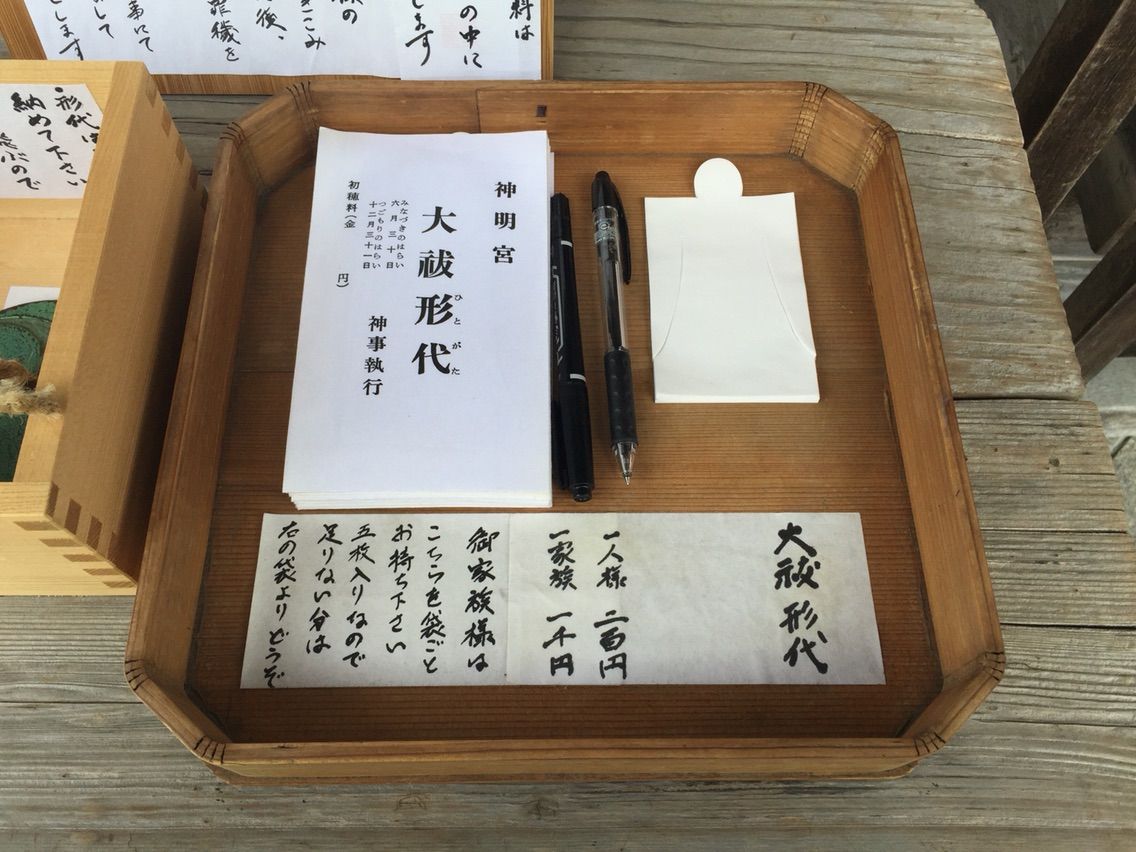 料は
の中に
します
様の
きこみ
後、
罪穢を
事にて
して
とします
形代は
納めて下さい
神明宮
大祓形代
ひとがた
みなづきのはらい
六月三十日
つごもりのはらい
十二月三十一日
神事執行
初穂料(金 円)
大祓形代
一人様 二百円
一家族 一千円
御家族様は
こちらを袋ごと
お持ち下さい
五枚入りなので
足りない分は
右の袋よりどうぞ